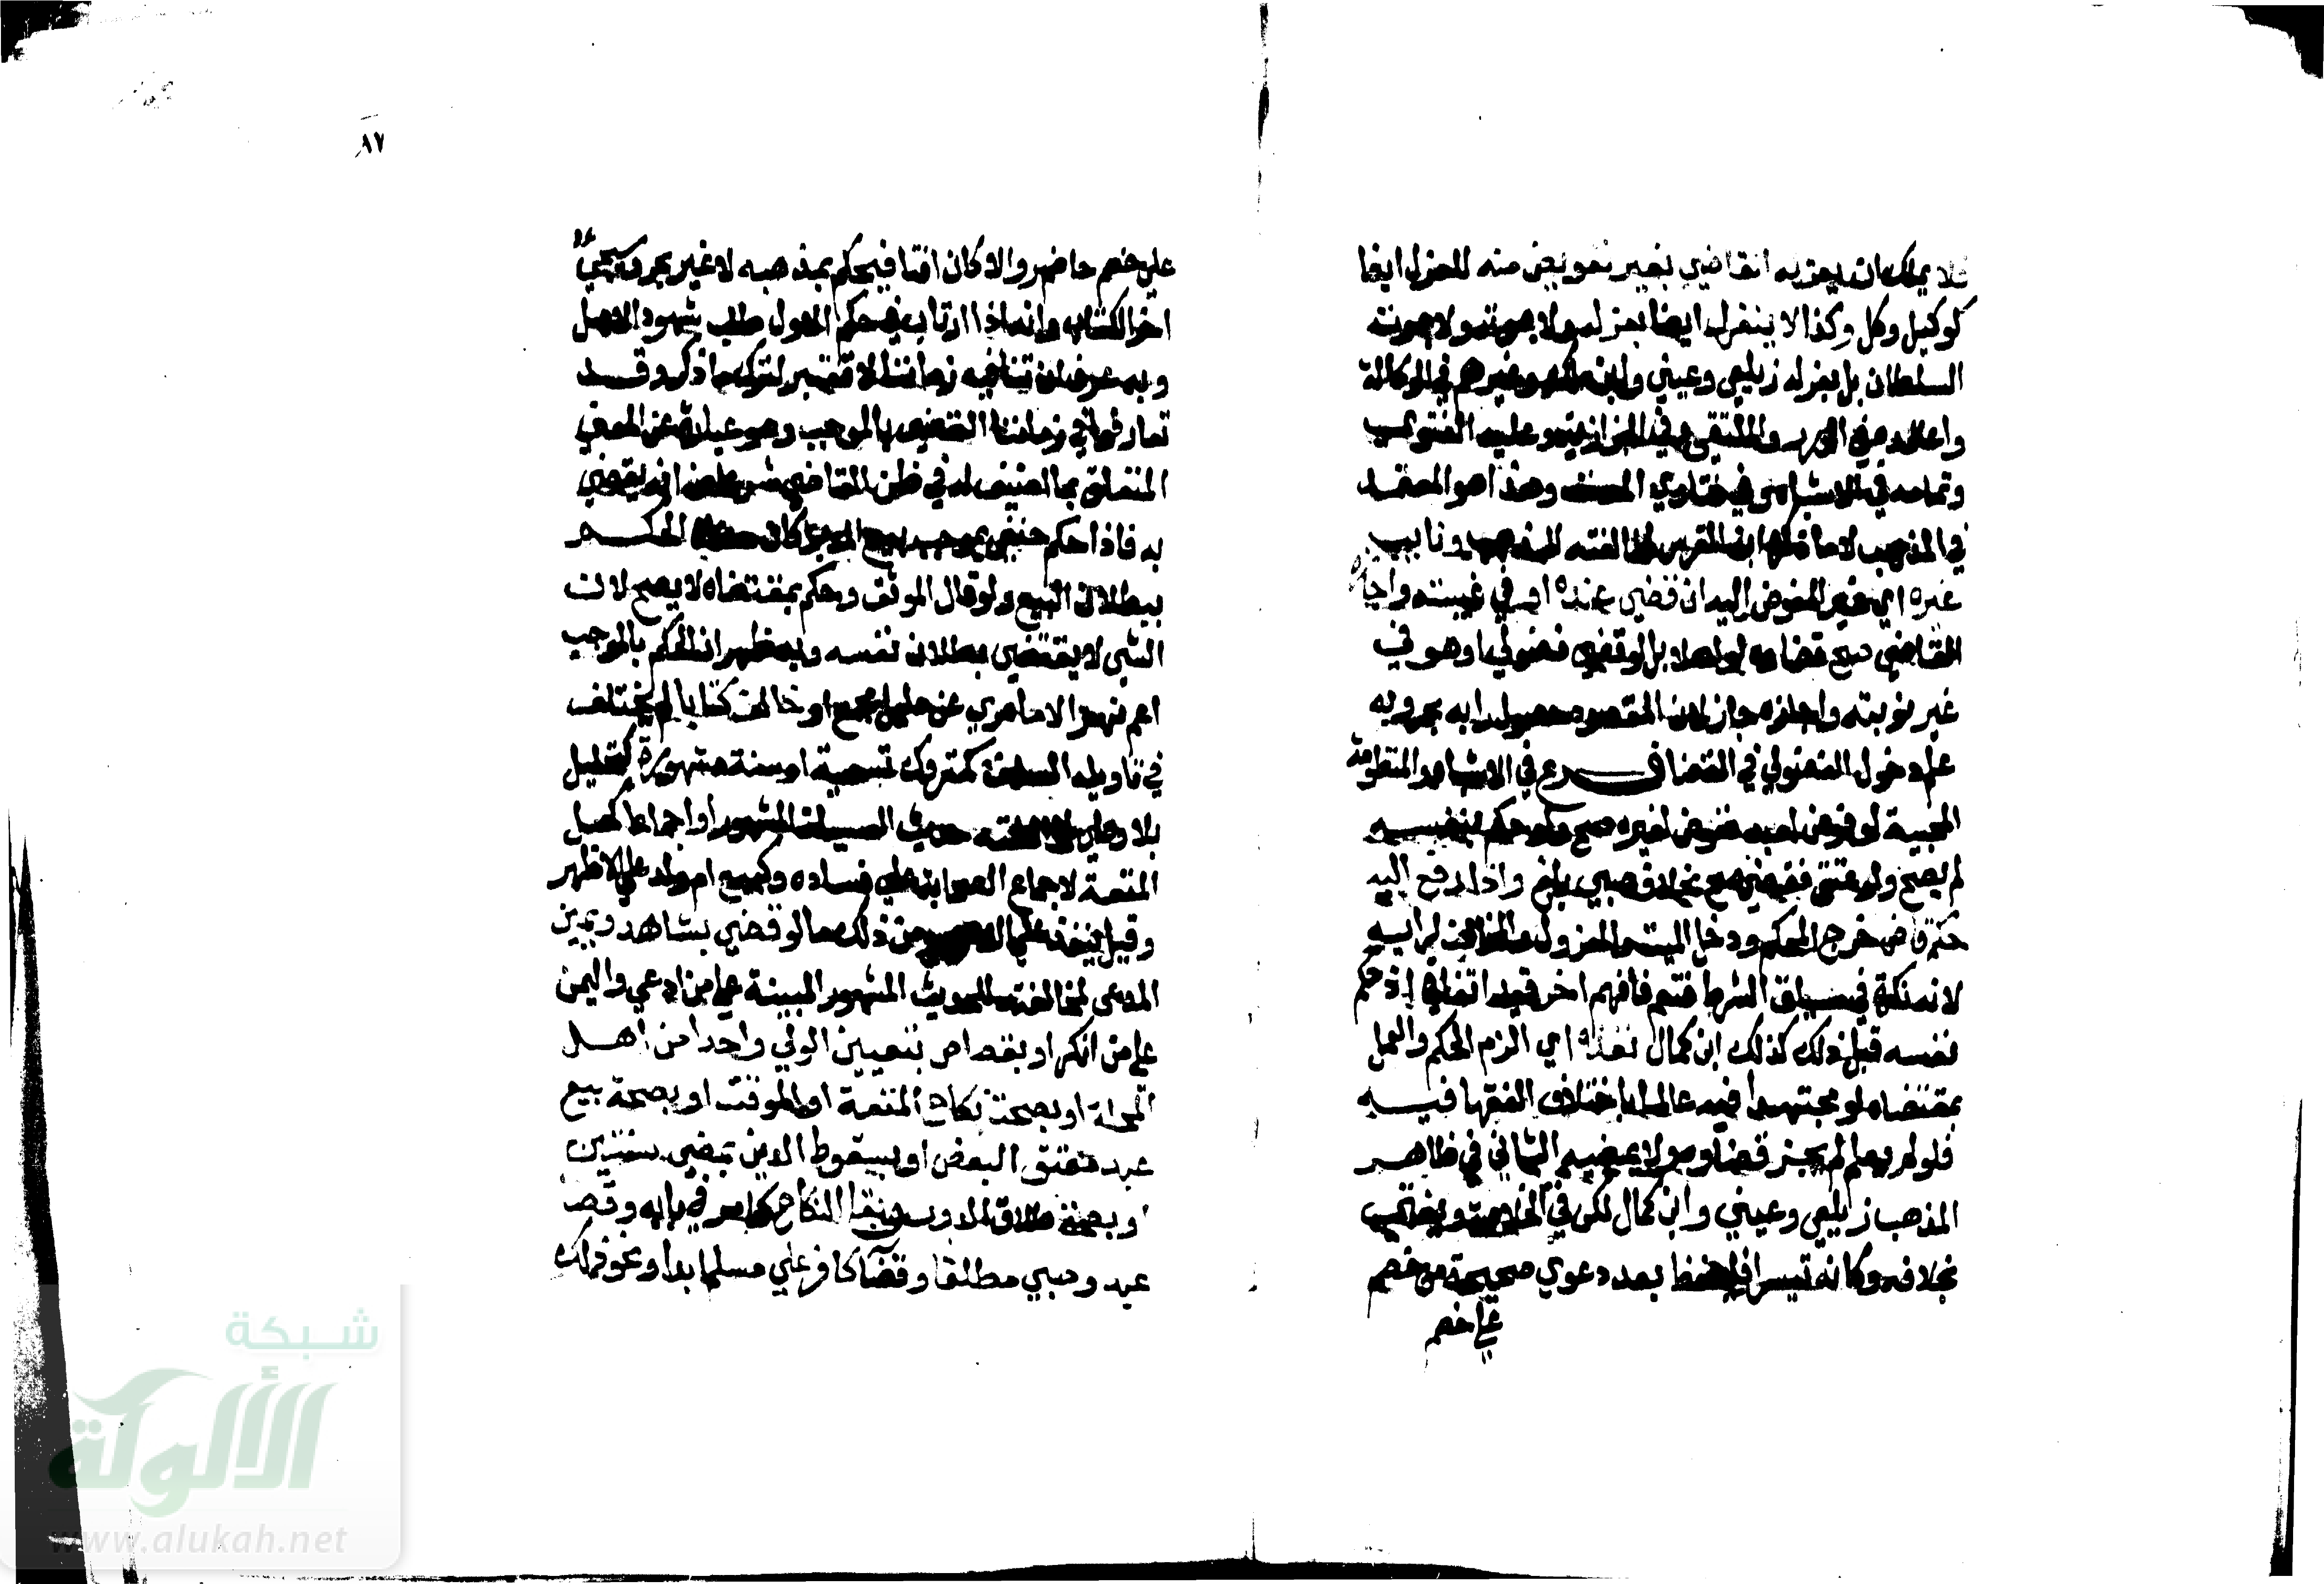 فلا يملك ان يعزله القاضي بغير تفويض منه للعزل ايضا
كوكيل وكل وكذا لا ينعزل ايضا بعزله ولا بموته ولا بموت
السلطان بل بعزله زيلعي وعيني وابن ملك وغيرهم في الوكالة
واعتمده في الدرر والملتقى وفي البزازية وعليه الفتوى
وتمامه في الاشباه وفي فتاوي المصنف وهذا هو المعتمد
في المذهب لا ما ذكره ابن الغرس لمخالفته للمذهب ونايب
غيره اي غير المفوض اليه ان قضي عنده او في غيبته واجازه
القاضي صح قضاوه لو اهلا بل لو قضي فضولي او هو في
غير نوبته واجازه جاز لان المقصود حصول رايه بحر وبه
علم دخول الفضولي في القضا فـــرع في الاشباه والمنظومة
المحبية لو فوض لعبد ففوض لغيره صح ولو حكم بنفسه
لم يصح ولو عتق فقضي صح بخلاف صبي بلغ واذا رفع اليه
حكم قاض خرج المحكم ودخل الميت والمعزول والمخالف لرايه
لانه نكرة في سياق الشرط فتعم فافهم اخر قيد اتفاقي اذ حكم
نفسه قبل ذلك كذلك ابن كمال نفذه اي الزم الحكم والعمل
بمقتضاه لو مجتهدا فيه عالما باختلاف الفقها فيه
فلو لم يعلم لم يجز قضاوه ولا يمضيه الثاني في ظاهر
المذهب زيلعي وعيني وابن كمال لكن في الخلاصة ويفتى
بخلافه وكانه تيسيرا فليحفظ بعد دعوي صحيحة من خصم
علي خصم
٨٧
علي خصم حاضر والا كان افتا فيحكم بمذهبه لا غير بحر وسيجي
اخر الكتاب وانه اذا ارتاب في حكم الاول طلب شهود الاصل
وبه عرف ان تنافيذ زماننا لا تعتبر لترك ما ذكر وقد
تعارفوا في زماننا القضا بالموجب وهو عبارة عن المعني
المتعلق بما اضيف له في ظن القاضي شرعا من انه يقضي
به فاذا حكم حنفي بموجب بيع المدبر كان معناه الحكم
ببطلان البيع ولو قال الموثق وحكم بمقتضاه لا يصح لان
الشي لا يقتضي بطلان نفسه وبه ظهر ان الحكم بالموجب
اعم نهر الا ما عري عن دليل مجمع او خالف كتابا لم يختلف
في تاويله السلف كمتروك تسمية او سنة مشهورة كتحليل
بلا وطي لمخالفته حديث العسيلة المشهور او اجماعا كحل
المتعة لاجماع الصحابة علي فساده وكبيع ام ولد علي الاظهر
وقيل ينفذ علي الاصح ومن ذلك ما لو قضي بشاهد ويمين
المدعى لمخالفته للحديث المشهور البينة علي من ادعي واليمين
علي من انكر او بقصاص بتعيين الولي واحدا من اهل
المحلة او بصحة نكاح المتعة او الموقت او بصحة بيع
عبد معتق البعض او بسقوط الدين بمضي سنين
او بصحة طلاق الدور وبقا النكاح كما مر في بابه وقضا
عبد وصبي مطلقا وقضا كافر علي مسلم ابدا ونحو ذلك
شبكة
الألوكة
www.alukah.net